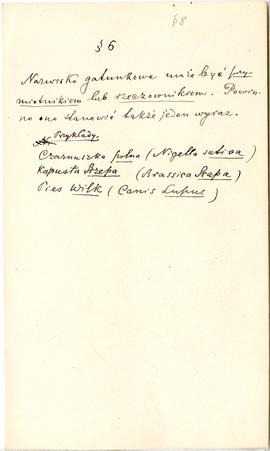 § 8
§ 6
Nazwisko gatunkowe może być przy-
miotnikiem lub rzeczownikiem. Powin-
no ono stanowić także jeden wyraz.
Przykłady.
Czarnuszka polna (Nigella sativa)
Kapusta Rzepa (Brassica Rapa)
Pies Wilk (Canis Lupus)